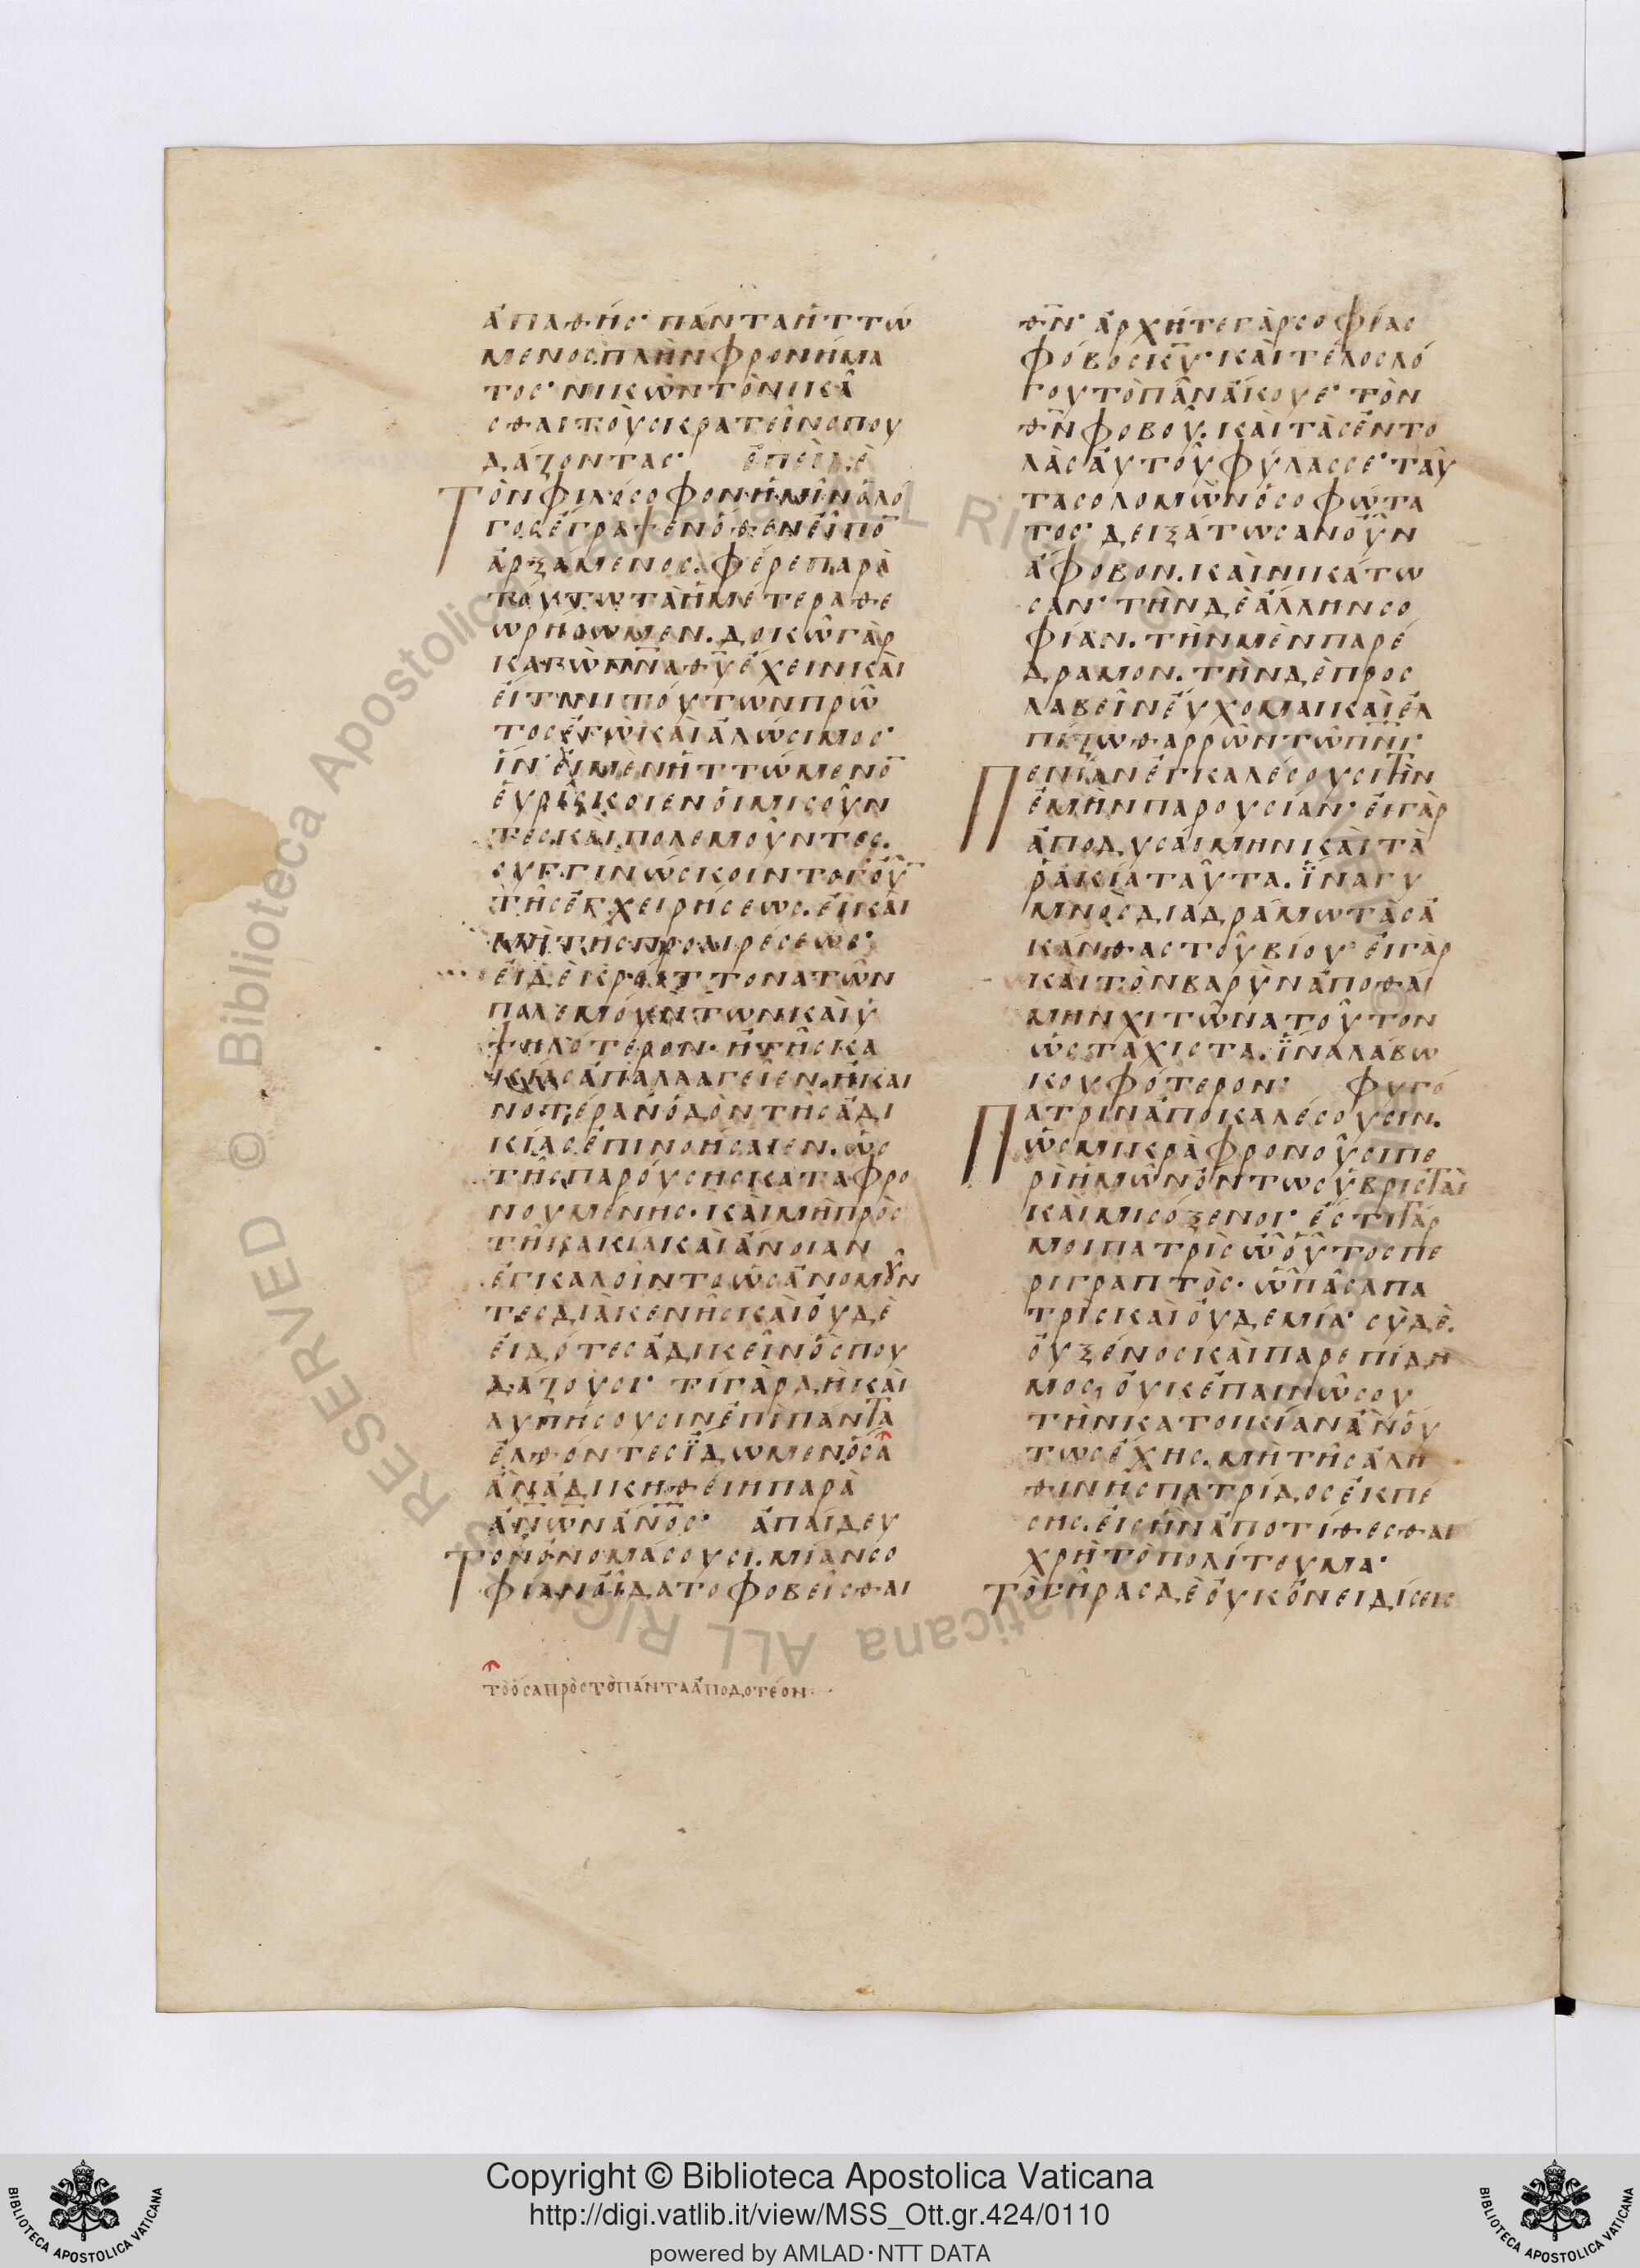 ἀπαθής· πάντα ἡττώ
μενος πλὴν φρονήμα
τος· νικῶν τὸ νικᾶ
σθαι τοὺς κρατεῖν σπου
δάζοντας· ἐπεὶ δὲ
τὸν φιλόσοφον ἡμῖν ὁ λό
γος ἔγραψεν ὅθεν εἶπο̅
ἀρξάμενος. φέρε παρὰ
τούτω τὰ ἡμέτερα θε
ωρήσωμεν. δοκῶ γὰρ
κἀγὼ π̅ν̅α̅ θ̅υ̅ ἔχειν καὶ
εἴ τινι τούτων πρῶ
τος ἐγὼ καὶ ἁλώσιμος·
ἵν' εἰ μὲν ἡττώμενο̅
εὑρίσκοιεν οἱ μισοῦν
τες καὶ πολεμοῦντες.
συγγινώσκοιντο γοῦ̅
τῆς ἐγχειρήσεως. εἰ καὶ
μὴ τῆς προαιρέσεως·
εἰ δὲ κρείττονα τῶν
πολεμούντων καὶ ὑ
ψηλότερον· ἢ τῆς κα
κίας ἀπαλλαγεῖεν. ἢ και
νοτέραν ὁδὸν τῆς ἀδι
κίας ἐπινοήσαιεν. ὡς
τῆς παρούσης καταφρο
νουμένης· καὶ μὴ πρὸς
τῆ κακία καὶ ἄνοιαν
ἐγκαλοῖντο ὡς ἀνομοῦν
τες διὰ κενῆς καὶ οὐδὲ
εἰδότες ἀδικεῖν ὃ σπου
δάζουσι· τί γὰρ δὴ καὶ
λυπήσουσιν ἐπὶ πάντα
ἐλθόντες ἴδωμεν ὅσα
ἂν ἀδικηθείη παρὰ
ἀ̅ν̅ω̅ν̅ ἄ̅ν̅ο̅ς̅· ἀπαίδευ
τον ὀνομάσουσι. μίαν σο
φίαν οἶδα τὸ φοβεῖσθαι
τὸ ὅσα πρὸς τὸ πάντα ἀποδοτέον
θ̅ν̅· ἀρχή τε γὰρ σοφίας
φόβος κ̅υ̅· καὶ τέλος λό
γου τὸ πᾶν ἄκουε· τὸν
θ̅ν̅ φοβοῦ. καὶ τὰς ἐντο
λὰς αὐτοῦ φύλασσε· ταῦ
τα σολομῶν ὁ σοφώτα
τος· δειξάτωσαν οὖν
ἄφοβον. καὶ νικάτω
σαν· τὴν δὲ ἄλλην σο
φίαν. τὴν μὲν παρέ
δραμον. τὴν δὲ προς
λαβεῖν εὔχομαι καὶ ἐλ
πίζω θαρρῶν τῶ π̅ν̅ι̅·
πενίαν ἐγκαλέσουσι τὴν
ἐμὴν παρουσίαν· εἰ γὰρ
ἀποδυσαίμην καὶ τὰ
ῥάκια ταῦτα. ἵνα γυ
μνὸς διαδράμω τὰς ἀ
κάνθας τοῦ βίου· εἰ γὰρ
καὶ τὸν βαρὺν ἀποθαί
μην χιτῶνα τοῦτον
ὡς τάχιστα. ἵνα λάβω
κουφότερον: φυγό
πατριν ἀποκαλέσουσιν.
ὡς μικρὰ φρονοῦσι πε
ρὶ ἡμῶν ὄντως ὑβρισταὶ
καὶ μισόξενοι· ἔστι γάρ
μοι πατρὶς ὦ οὗτος πε
ριγραπτὸς· ὧ πᾶσα πα
τρὶς καὶ οὐδεμία· σὺ δὲ.
οὐ ξένος καὶ παρεπίδη
μος; οὐκ ἐπαινῶ σου
τὴν κατοικίαν ἂν οὕ
τως ἔχης. μὴ τῆς ἀλη
θινῆς πατρίδος ἐκπέ
σης. εἰς ἣν ἀποτίθεσθαι
χρὴ τὸ πολίτευμα·
τὸ γῆρας δὲ οὐκ ὀνειδίσεις
Copyright © Biblioteca Apostolica Vaticana
http://digi.vatlib.it/view/MSS_Ott.gr.424/0110
powered by AMLAD·NTT DATA
BIBLIOTECA APOSTOLICA VATICANA
BIBLIOTECA APOSTOLICA VATICANA